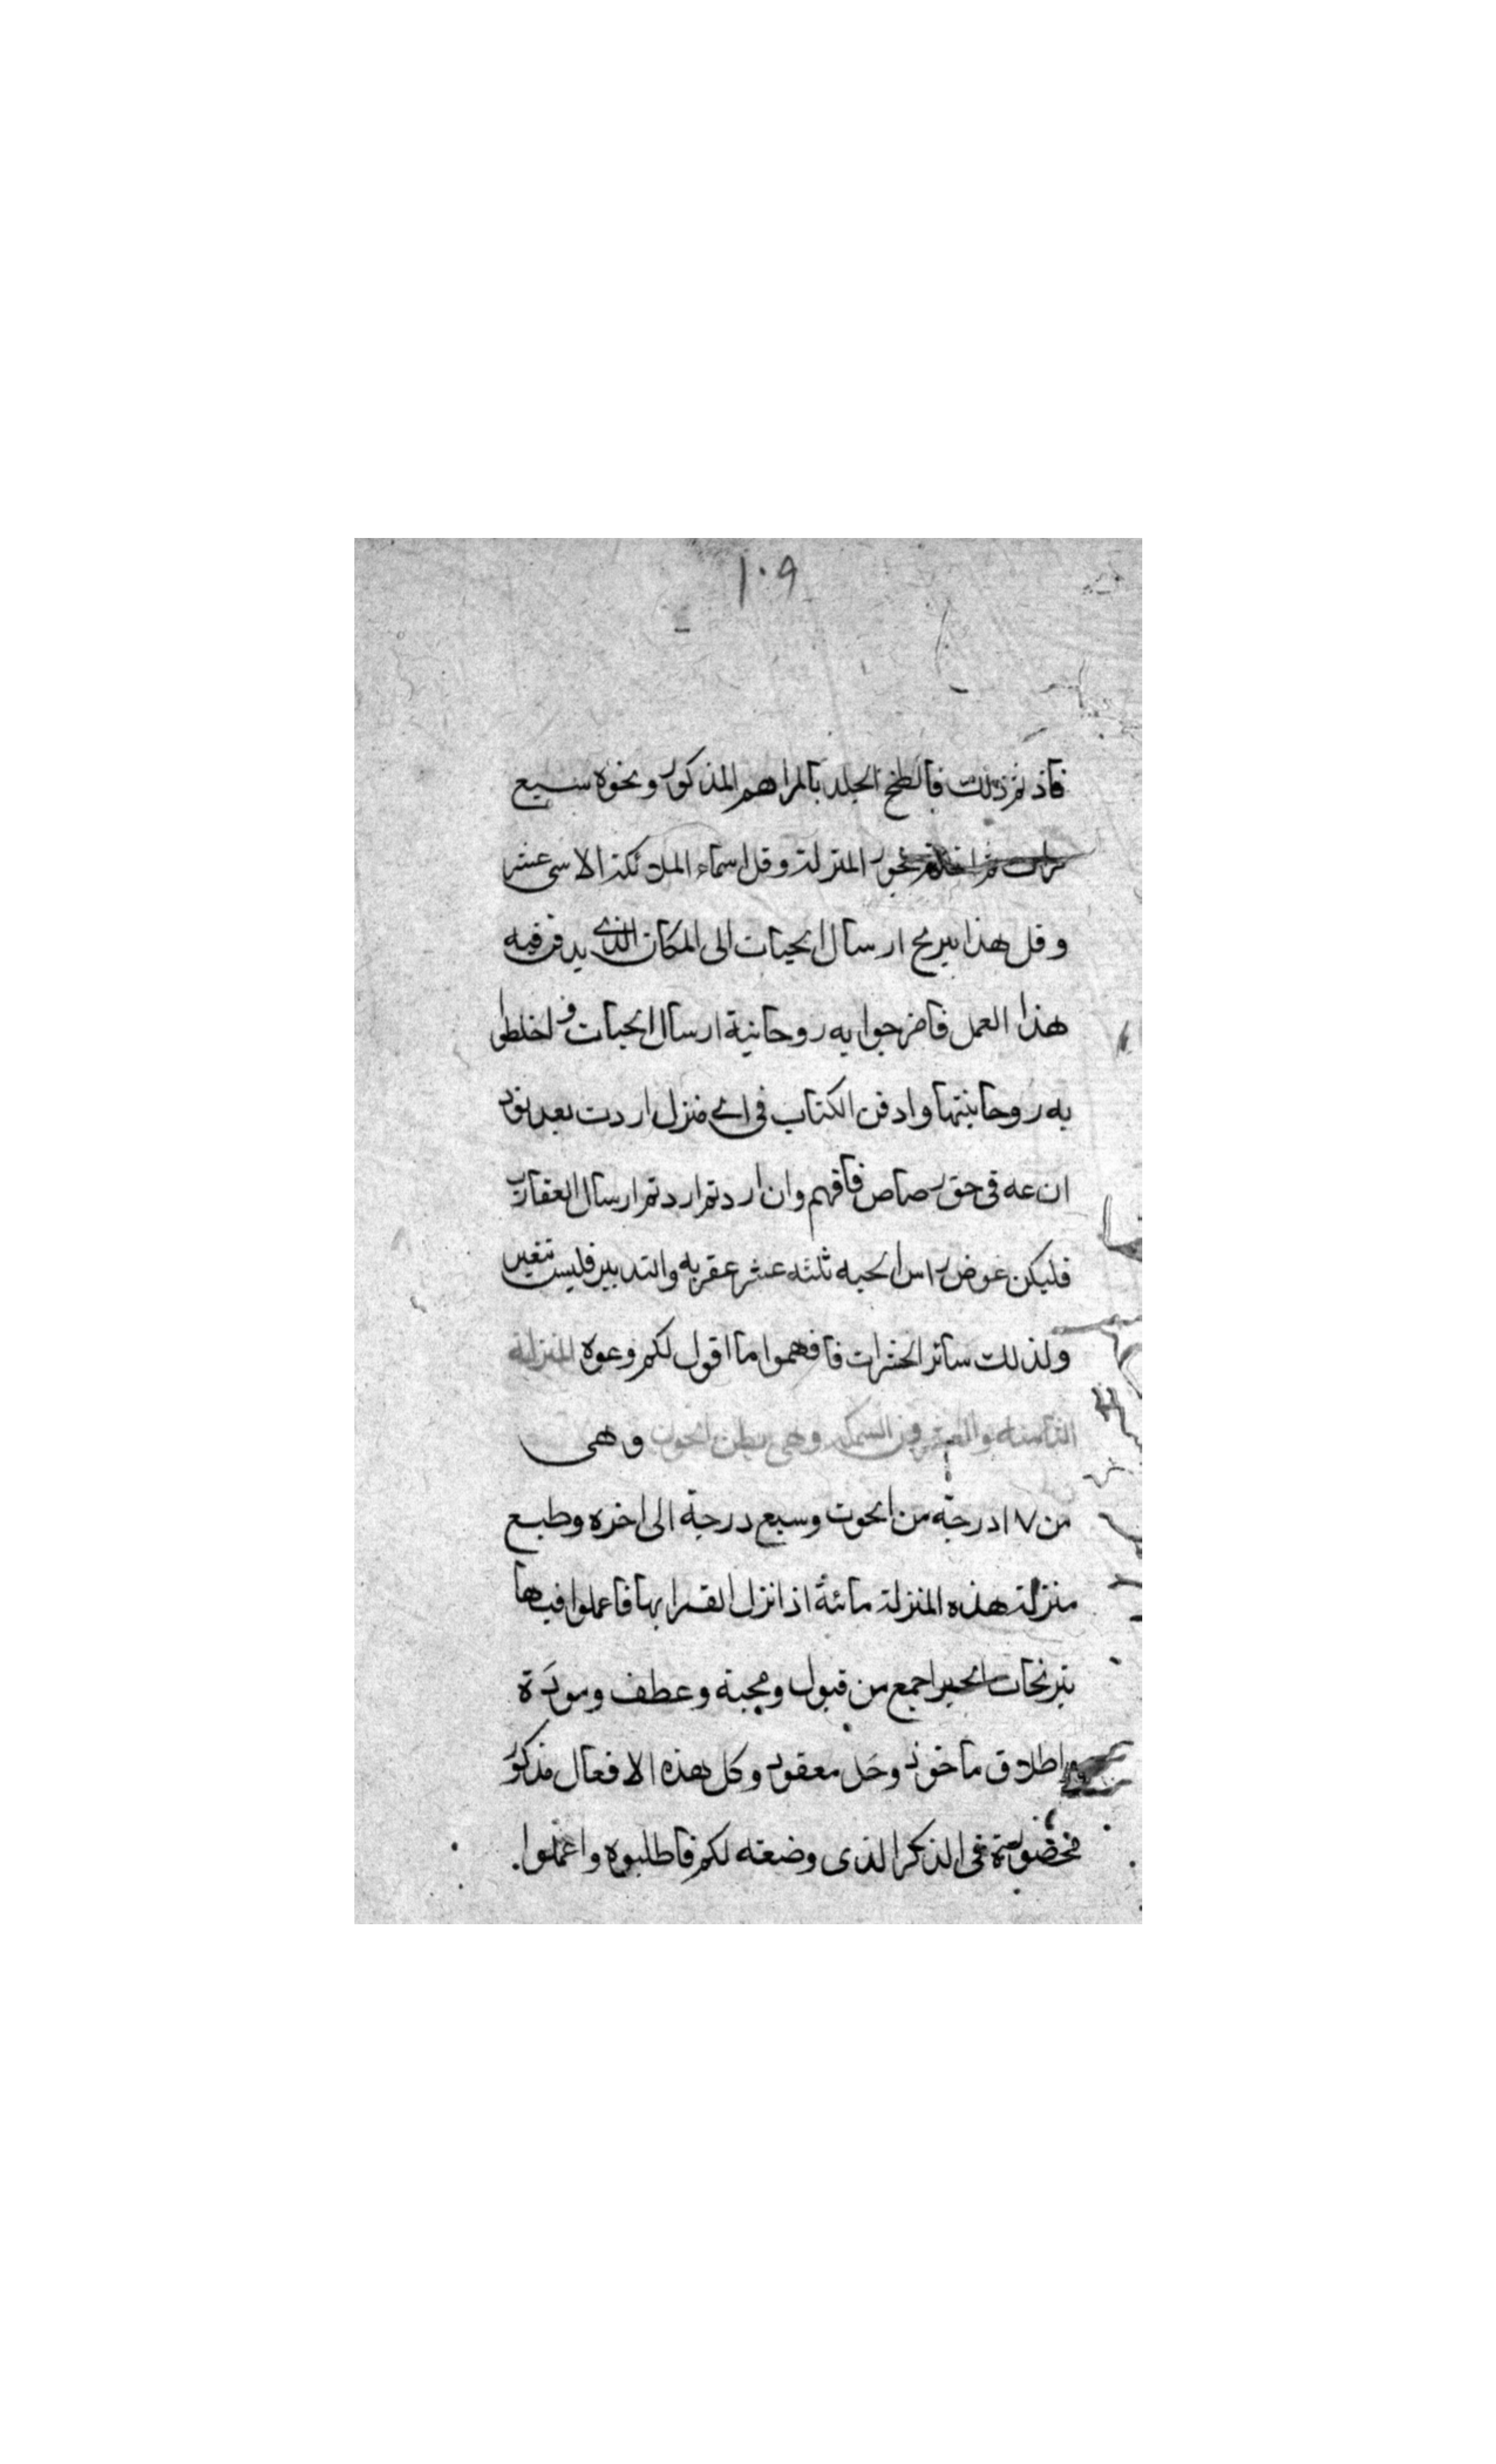 ١٠٩
فاذ تم ذلك فالطخ الجلد بالمراهم المذكور ونحوه سبع
مرات ثم بخور المنزلة وقل اسماء الملائكة الاسى عشر
وقل هذا نيرنج ارسال الحيات الى المكان الذى يدفن فيه
هذا العمل فامزجوا به روحانية ارسال الحيات و اخلطى
به روحانيتها وادفن الكتاب فى اى منزل اردت بعد
فى حق رصاص فافهم وان اردتم اردتم ارسال العقارب
فليكن عوض راس الحيه ثلثه عشر عقربه والتدبير فليست تتغير
ولذلك سائر الحشرات فافهموا ما اقول لكم وعوه المنزلة
الثامنه والعشرون السمكه وهى بطن الحوت وهى
من ١٧ درجة من الحوت وسبع درجة الى اخره وطبع
منزلة هذه المنزلة مائة اذا نزل القمر بها فاعملوا فيها
نيرنجات الخير اجمع من قبول ومحبة وعطف ومودة
واطلاق ماخوذ وحل معقود وكل هذه الافعال مذكور
فى الذكر الذى وضعته لكم فاطلبوه واعملوا